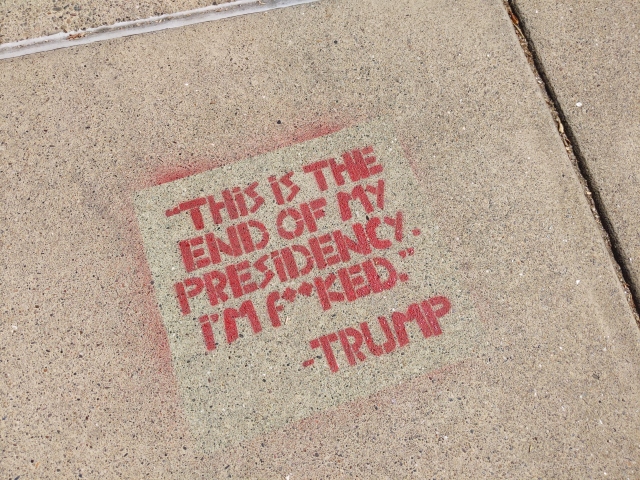 "THiS iS THE
END OF MY
PRESiDENCY.
i'M F**KED."
-TRUMP